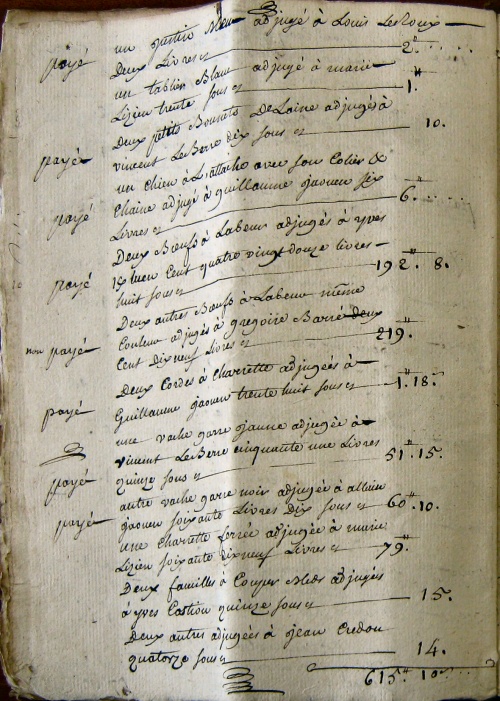 un justin Bleu adjugé à Louis LeRoux
payé Deux Livres 2.#
un tablier Blanc adjugé à marie
Lizien trente sous 1.#
Deux petits Bonnets De Laine adjugés à
payé vincent LeBerre dix sous 10.
un chien à L'attache avec son Colier &
payé Chaine adjugé à guillaume jaouen six
Livres 6.#
Deux Bœufs à Labeur adjugés à yves
payé Cent quatre vingt douze livres
huit sous 192.# 8.
Deux autres Bœufs à Labeur même
non payé Couleur adjugés à gregoire Barré deux
Cent Dix neuf Livres 219.#
Deux Cordes à Charrette adjugées à
payé Guillaume jaouen trente huit sous 1.# 18.
une vache garre jaune adjugée à
vincent LeBerre cinquante une Livres
payé quinze sous 51.# 15.
autre vache garre noir adjugée à allain
payé jaouen soixante Livres Dix sous 60.# 10.
une Charrette ferrée adjugée à marie
Lizien soixante dix neuf Livres 79.#
Deux faucilles à Couper Bled adjugés
à yves quinze sous 15.
Deux autres adjugées à jean Credou
quatorze sous 14.
615.# 10